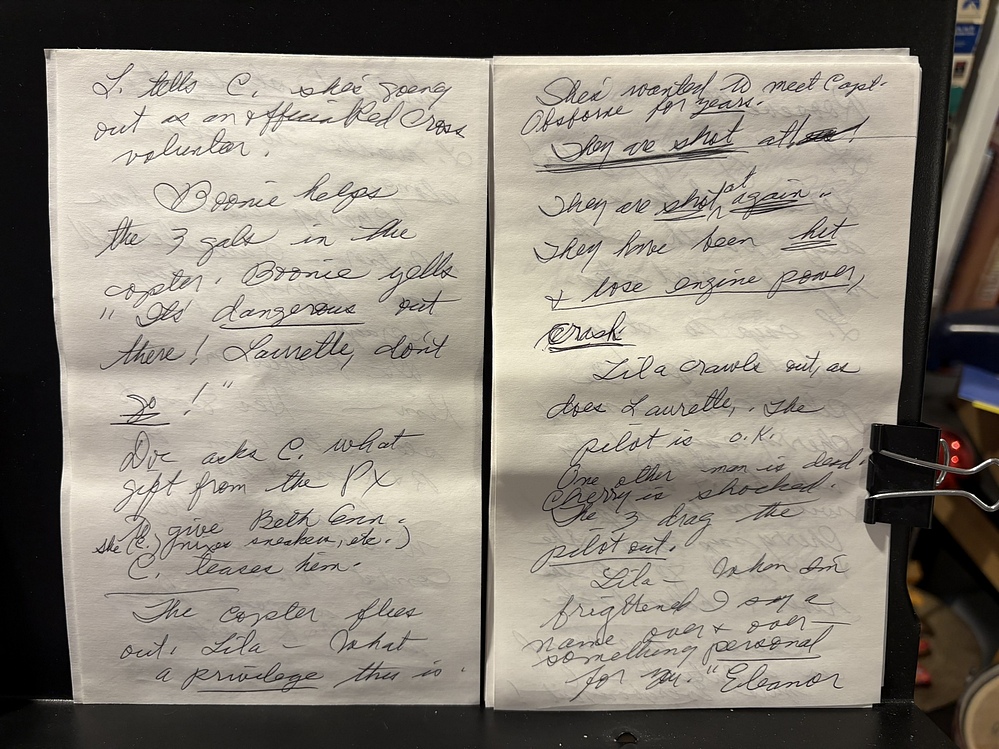 L. tells C. she's going
out as an official Red Cross
volunteer.
Boonie helps
the 3 gals in the
copter. Boonie yells
"It's dangerous out
there! Laurette, don't
go!"
Doc asks C. what
gift from the PX
to give Beth Ann.
she (C.) mixes sneakers, etc.)
C. teases him.
The copter flies
out. Lila – What
a privilege this is.
She's wanted to meet Capt.
Osborne for years.
They are shot at
They are shot at again.
They have been hit
& lose engine power,
crash.
Lila crawls out, as
does Laurette,. The
pilot is o.K.
One other man is dead.
Cherry is shocked.
The 3 drag the
pilot out.
Lila – When I'm
frightened I say a
name over & over –
something personal
for you. "Eleanor